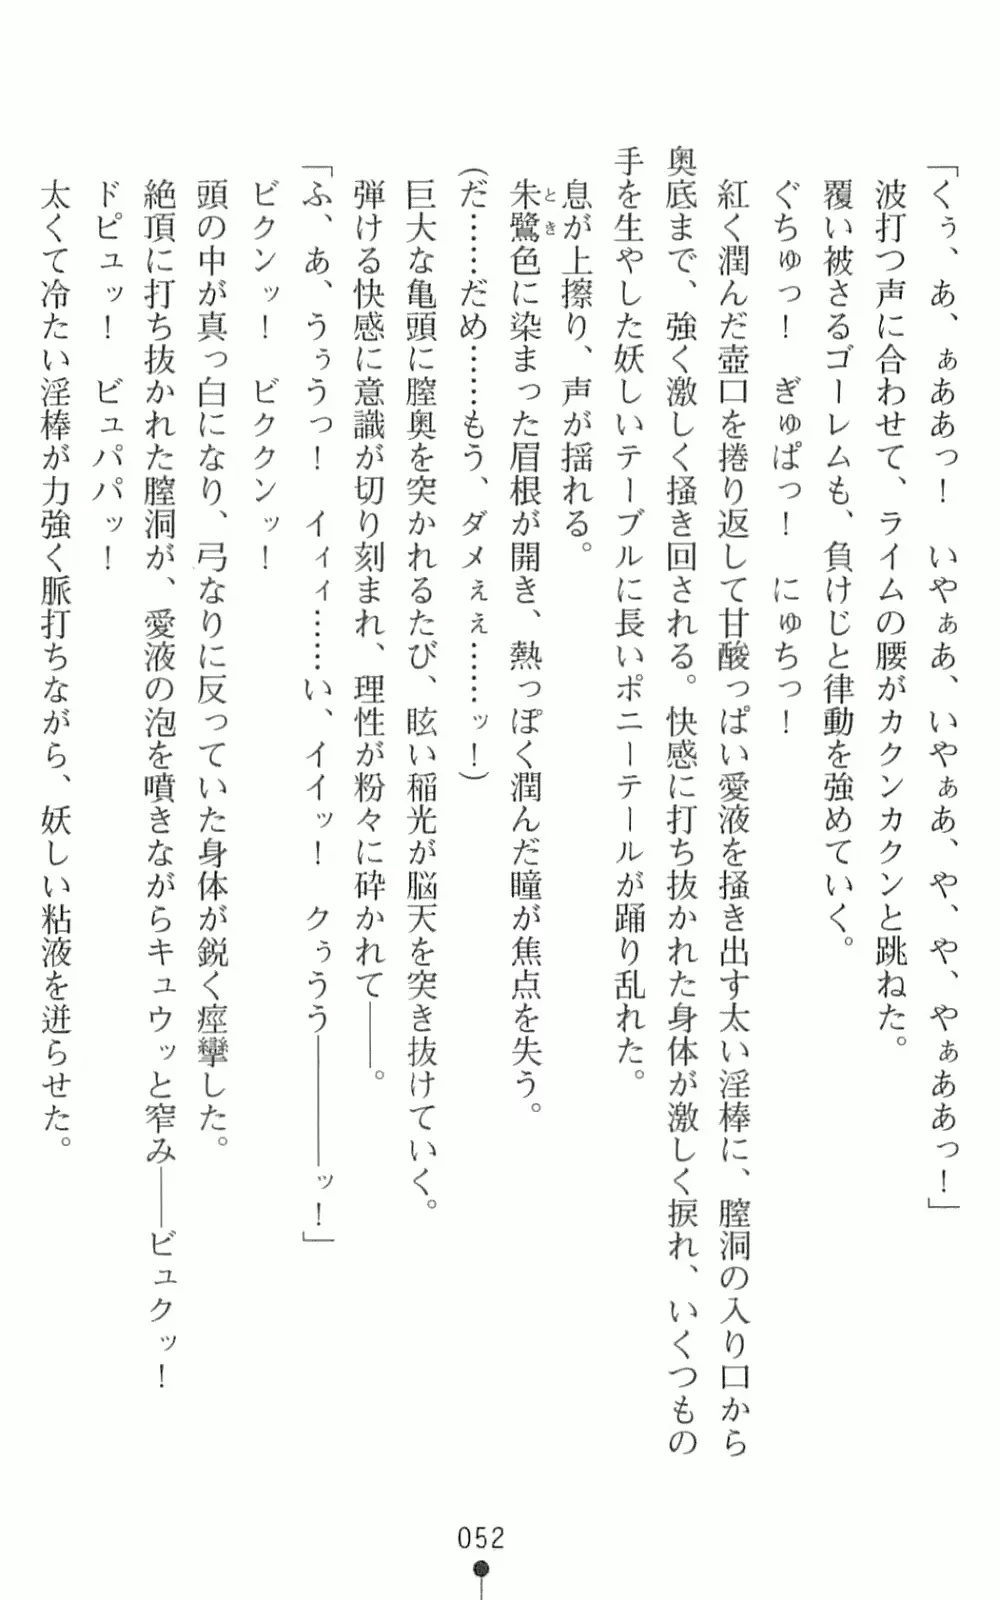 「くぅ、あ、ぁああっ！　いやぁあ、いやぁあ、や、や、やぁああっ！」
波打つ声に合わせて、ライムの腰がカクンカクンと跳ねた。
覆い被さるゴーレムも、負けじと律動を強めていく。
ぐちゅっ！　ぎゅぱっ！　にゅちっ！
紅く潤んだ壺口を捲り返して甘酸っぱい愛液を掻き出す太い淫棒に、膣洞の入り口から
奥底まで、強く激しく掻き回される。快感に打ち抜かれた身体が激しく捩れ、いくつもの
手を生やした妖しいテーブルに長いポニーテールが踊り乱れた。
息が上擦り、声が揺れる。
朱鷺色に染まった眉根が開き、熱っぽく潤んだ瞳が焦点を失う。
とき
(だ……だめ……もう、ダメぇぇ……ッ！)
巨大な亀頭に膣奥を突かれるたび、眩い稲光が脳天を突き抜けていく。
弾ける快感に意識が切り刻まれ、理性が粉々に砕かれて――。
「ふ、あ、うぅうっ！　イィィ……い、イイッ！　クぅうう――――ッ！」
ビクンッ！　ビククンッ！
頭の中が真っ白になり、弓なりに反っていた身体が鋭く痙攣した。
絶頂に打ち抜かれた膣洞が、愛液の泡を噴きながらキュウッと窄み――ビュクッ！
ドピュッ！　ビュパパッ！
太くて冷たい淫棒が力強く脈打ちながら、妖しい粘液を迸らせた。
052